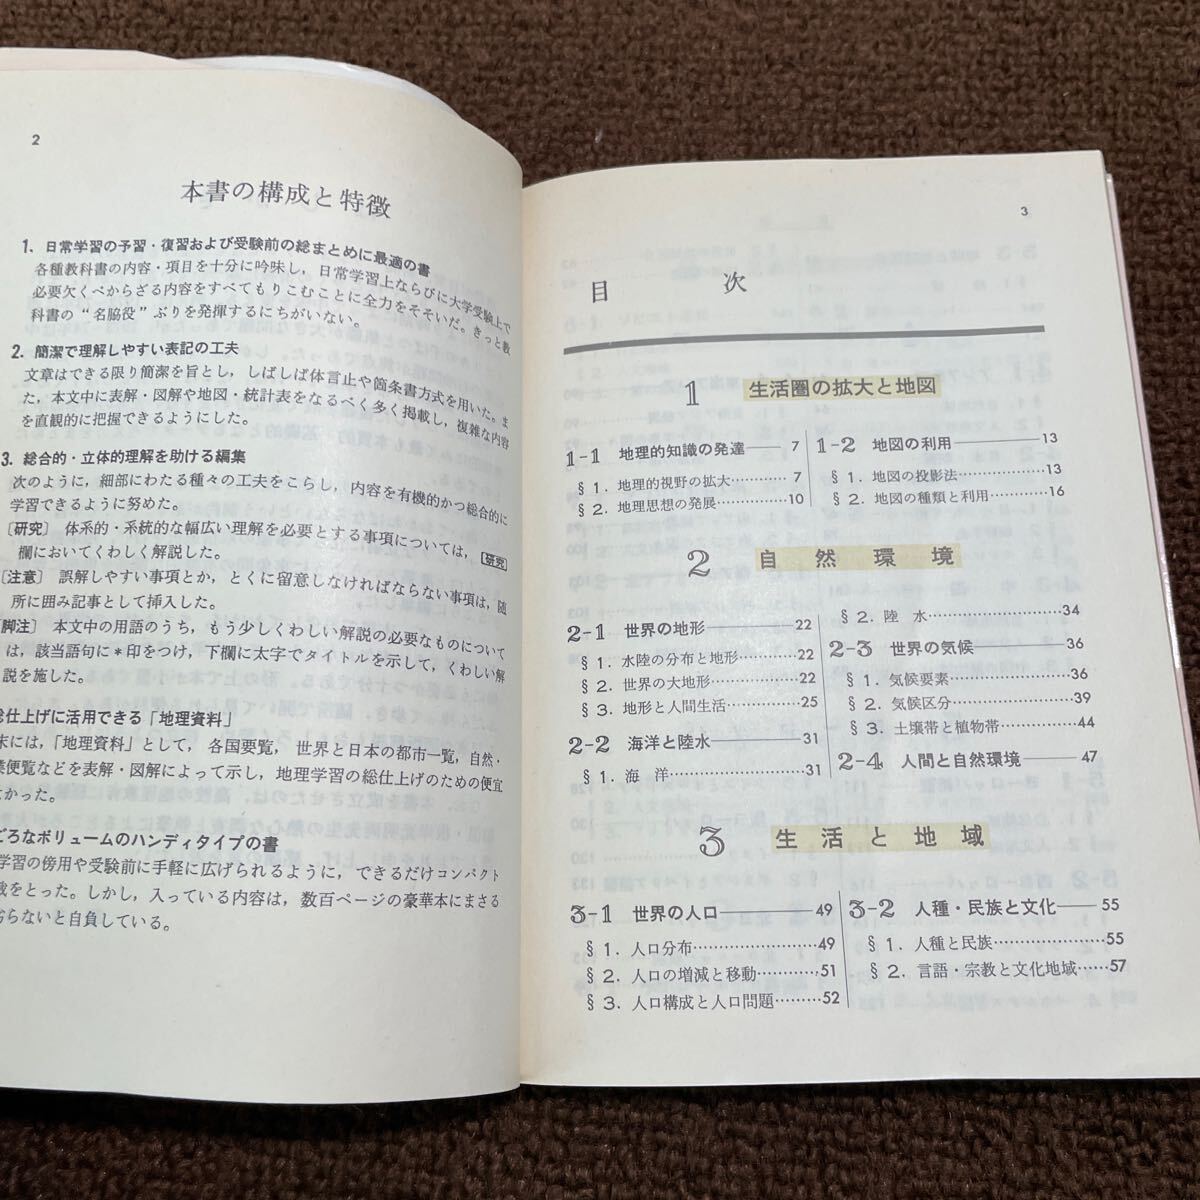 2
本書の構成と特徴
1. 日常学習の予習・復習および受験前の総まとめに最適の書
各種教科書の内容・項目を十分に吟味し，日常学習上ならびに大学受験上で
必要欠くべからざる内容をすべてもりこむことに全力をそそいだ。きっと教
科書の“名脇役”ぶりを発揮するにちがいない。
2. 簡潔で理解しやすい表記の工夫
文章はできる限り簡潔を旨とし，しばしば体言止や箇条書方式を用いた。ま
た，本文中に表解・図解や地図・統計表をなるべく多く掲載し，複雑な内容
を直観的に把握できるようにした。
3. 総合的・立体的理解を助ける編集
次のように，細部にわたる種々の工夫をこらし，内容を有機的かつ総合的に
学習できるように努めた。
〔研究〕 体系的・系統的な幅広い理解を必要とする事項については，〔研究〕
欄においてくわしく解説した。
〔注意〕 誤解しやすい事項とか，とくに留意しなければならない事項は，随
所に囲み記事として挿入した。
脚注〕 本文中の用語のうち，もう少しくわしい解説の必要なものについて
は，該当語句に＊印をつけ，下欄に太字でタイトルを示して，くわしい解
説を施した。
仕上げに活用できる「地理資料」
末には，「地理資料」として，各国要覧，世界と日本の都市一覧，自然・
業便覧などを表解・図解によって示し，地理学習の総仕上げのための便宜
かった。
ごろなボリュームのハンディタイプの書
学習の傍用や受験前に手軽に広げられるように，できるだけコンパクト
をとった。しかし，入っている内容は，数百ページの豪華本にまさる
劣らないと自負している。
3
目 次
1 生活圏の拡大と地図
1-1 地理的知識の発達 7
§1. 地理的視野の拡大 7
§2. 地理思想の発展 10
1-2 地図の利用 13
§1. 地図の投影法 13
§2. 地図の種類と利用 16
2 自然環境
2-1 世界の地形 22
§1. 水陸の分布と地形 22
§2. 世界の大地形 22
§3. 地形と人間生活 25
2-2 海洋と陸水 31
§1. 海洋 31
§2. 陸水 34
2-3 世界の気候 36
§1. 気候要素 36
§2. 気候区分 39
§3. 土壌帯と植物帯 44
2-4 人間と自然環境 47
3 生活と地域
3-1 世界の人口 49
§1. 人口分布 49
§2. 人口の増減と移動 51
§3. 人口構成と人口問題 52
3-2 人種・民族と文化 55
§1. 人種と民族 55
§2. 言語・宗教と文化地域 57